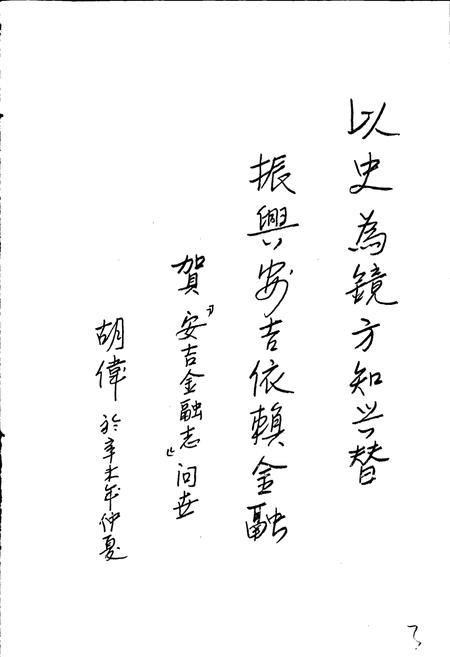 以史為鏡方知兴替
振興安吉依賴金融
賀“安吉金融志”问世
胡偉於辛未年仲夏
3